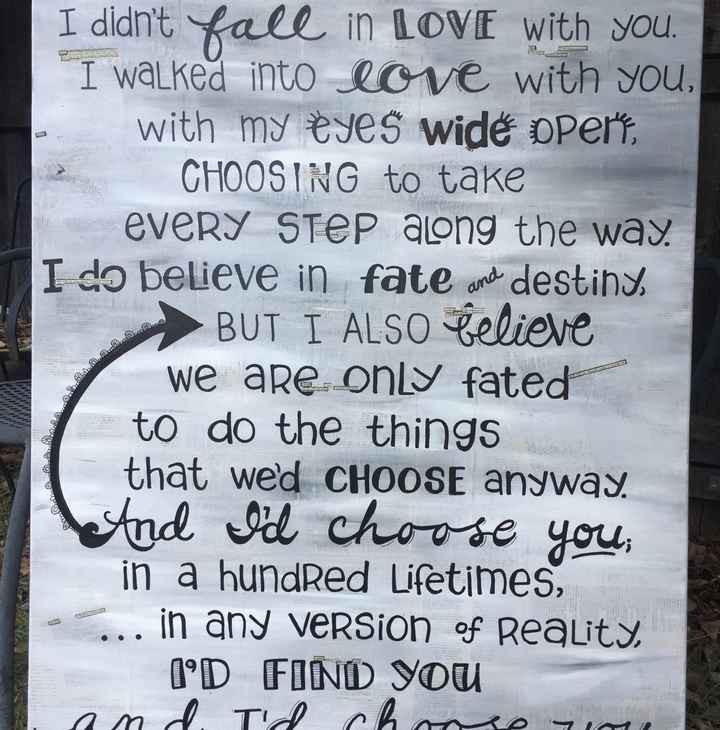 I didn't fall in LOVE with you.
I walked into love with you,
with my eyes wide open,
CHOOSING to take
every STEP along the way.
I do believe in fate and destiny,
BUT I ALSO believe
we are only fated
to do the things
that we'd CHOOSE anyway.
And I'd choose you;
in a hundred lifetimes,
... in any version of Reality,
I'D FIND YOU
and I'd choose you